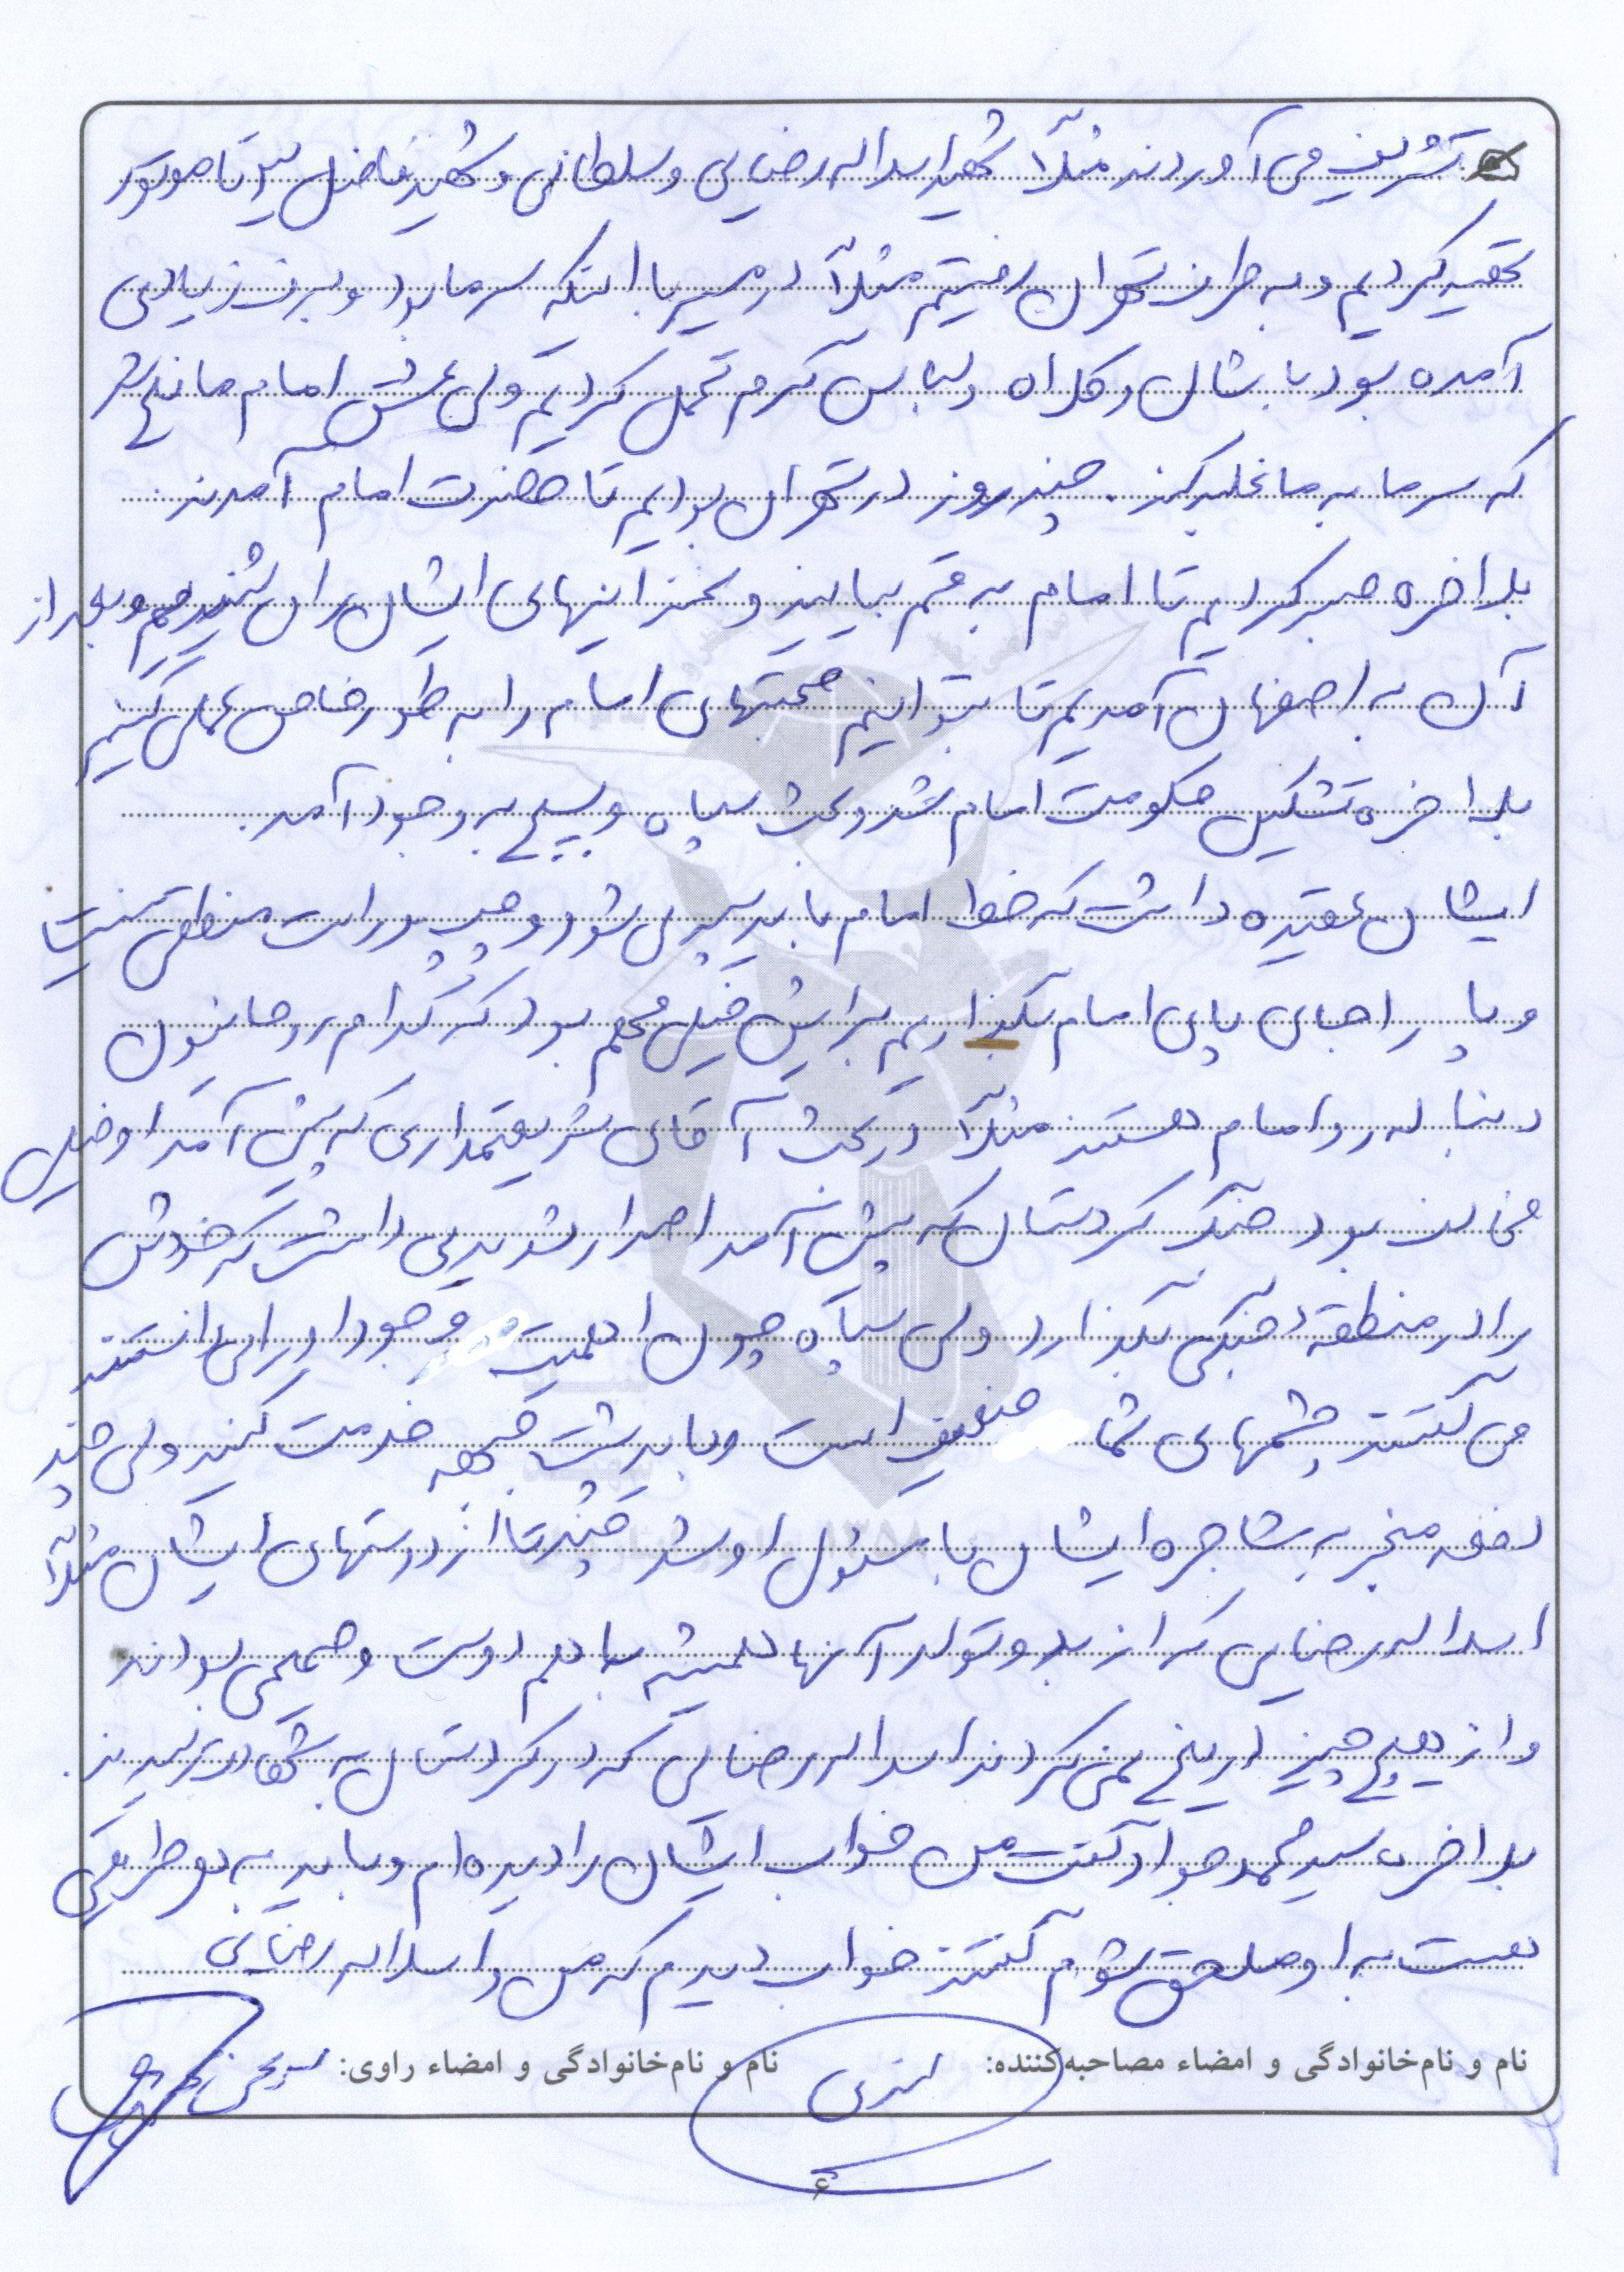 تشریف می آوردند مثلاً شهید اسداله رضایی و سلطانی و شهید فاضل سه تا موتور
تهیه کردیم و به طرف تهران رفتیم مثلاً در مسیر با اینکه سرما بود و برف زیادی
آمده بود با شال و کلاه و لباس گرم تحمل کردیم ولی عشق امام مانع شد
که سرما به ما غلبه کند. چند روز در تهران بودیم تا حضرت امام آمدند.
بلاخره صبر کردیم تا امام به قم بیایند و سخنرانیهای ایشان را شنیدیم و بعد از
آن به اصفهان آمدیم تا بتوانیم صحبتهای امام را به طور خاص عملی کنیم
بلاخره تشکیل حکومت امام شد و بحث سپاه و بسیج به وجود آمد.
ایشان عقیده داشت که خط امام باید پیروی شود و چپ و راست منطقی نیست
و پا را جای پای امام بگذاریم برایش خیلی مهم بود که کدام روحانیون
دنباله رو امام هستند مثلاً در بحث آقای شریعتمداری که پیش آمد او خیلی
مخالف بود جنگ کردستان که پیش آمد اصرار شدیدی داشت که خودش
را در منطقهٔ جنگی بگذارد ولی سپاه چون اهمیت وجود او را می دانستند
می گفتند چشمهای شما ضعیف است و باید پشت جبهه خدمت کنید ولی چند
دفعه منجر به مشاجره ایشان با مسئول او شد چند تا از دوستهای ایشان مثلاً
اسداله رضایی که از بدو تولد آنها همیشه با هم دوست و صمیمی بودند
و از هیچ چیز دریغ نمی کردند اسداله رضایی که در کردستان به شهادت رسیدند.
بلاخره سید محمد جواد گفت من خواب ایشان را دیده ام و باید به هر طریقی
هست به او ملحق شوم گفتند خواب دیدم که من و اسداله رضایی
نام و نام‌خانوادگی و امضاء مصاحبه‌کننده: نام و نام‌خانوادگی و امضاء راوی:
۶